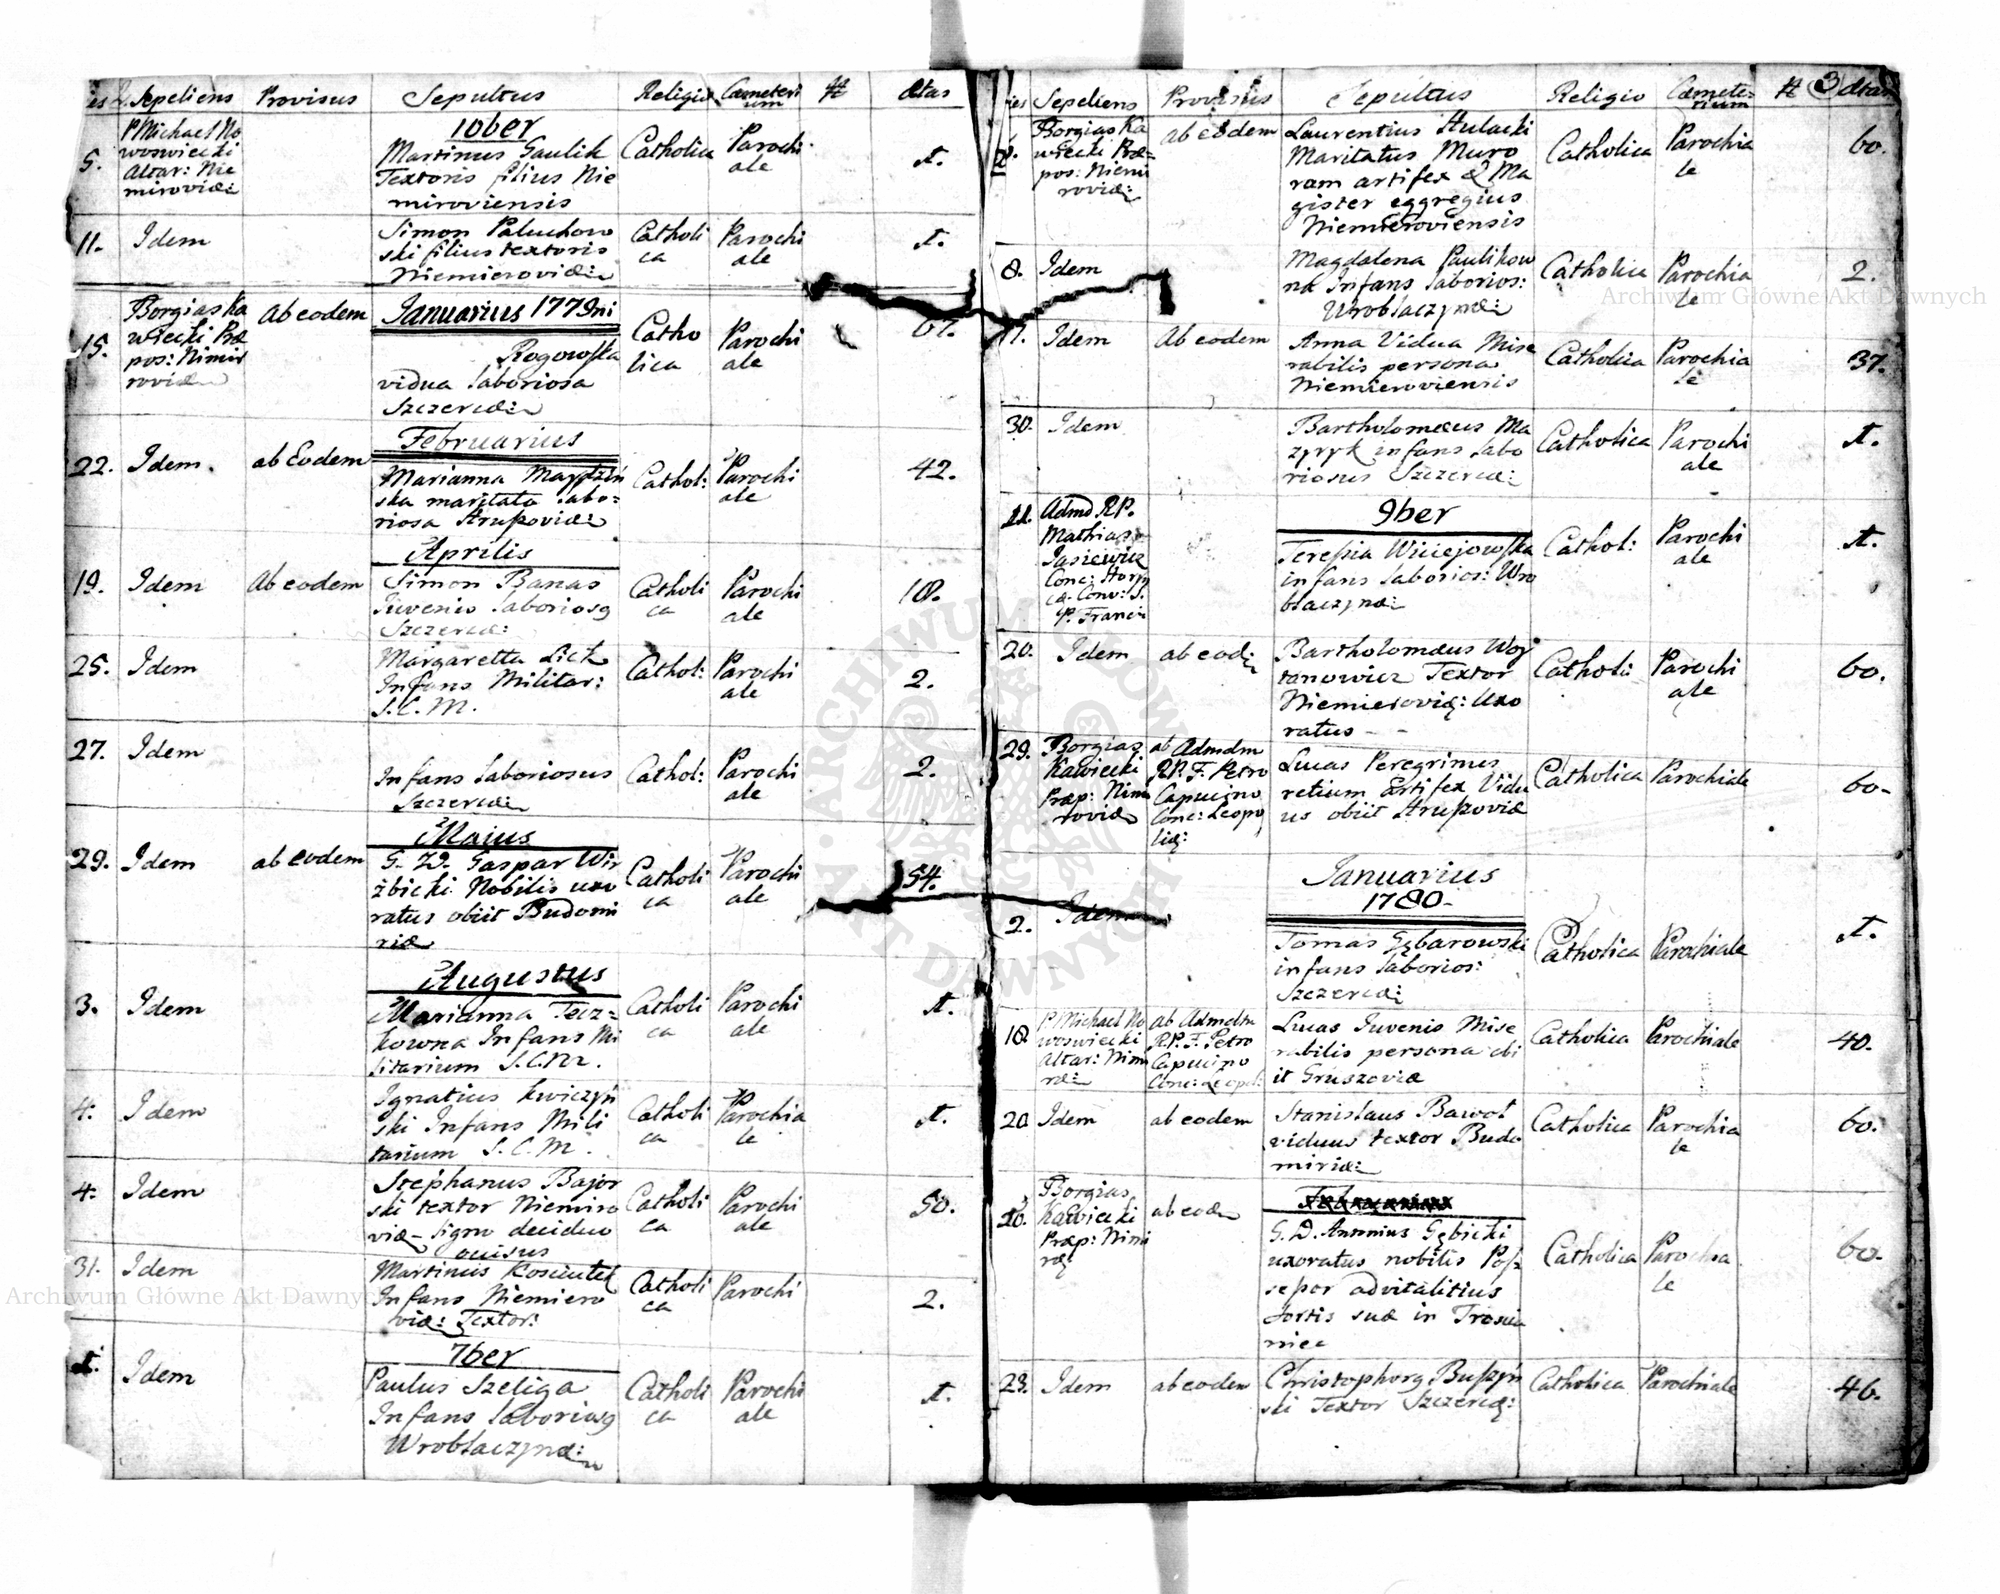 Dies Sepeliens Provisus Sepultus Religio Cæmeterium # Ætas
10ber
5. P. Michael No
woswiecki
Altar: Nie
miroviæ:
Martinus Gaulik
Textoris filius Nie
miroviensis
Catholica
Parochi
ale
1.
11. Idem
Simon Paluchow
ski filius textoris
Niemieroviæ:
Catholi
ca
Parochi
ale
1.
Januarius 1779ni
15. Borgias Ka
wiecki Præ
pos: Nimir
roviæ
Ab eodem
Rogowska
vidua laboriosa
Szczercæ:
Catho
lica
Parochi
ale
67.
Februarius
22. Idem. ab Eodem
Marianna
ska maritata labo=
riosa Hrupoviæ:
Cathol:
Parochi
ale
42.
Aprilis
19. Idem Ab eodem
Simon Banas
Iuvenis laborios9
Szczercæ:
Catholi
ca
Parochi
ale
18.
25. Idem
Margaretta Lick
Infans Militar:
S.C.M.
Cathol:
Parochi
ale
2.
27. Idem
Infans laboriosus
Szczercæ:
Cathol:
Parochi
ale
2.
Maius
29. Idem ab eodem
G. D. Gaspar Wir
żbicki Nobilis uxo
ratus obiit Budomi
riæ
Catholi
ca
Parochi
ale
54.
Augustus
3. Idem
Marianna Tecz=
kowna Infans Mi
litarium S.C.M.
Catholi
ca
Parochi
ale
1.
4. Idem
Ignatius Kwiczyń
ski Infans Mili
tarium S.C.M.
Catholi
ca
Parochia
le
1.
4. Idem
Stephanus Bajor
ski textor Niemiro
viæ ligno deciduo
ocisus
Catholi
ca
Parochi
ale
50.
31. Idem
Martinus Kosciutek
Infans Niemiero
viæ: Textor:
Catholi
ca
Parochi
2.
7ber
1. Idem
Paulus Szeliga
Infans laborios9
Wroblaczynæ:
Catholi
ca
Parochi
ale
1.
Dies Sepeliens Provisus Sepultus Religio Cæmete=
rium # 3 Ætas
Borgias Ka
wiecki Præ=
pos: Niemi
roviæ
ab eodem
Laurentius Hulacki
Maritatus Muro
rum artifex & Ma
gister eggregius
Niemieroviensis
Catholica
Parochia
le
60.
8. Idem
Magdalena Paulikow
na Infans laborios:
Wroblaczynæ:
Catholica
Parochia
le
2.
Idem Ab eodem
Anna Vidua Mise
rabilis persona
Niemieroviensis
Catholica
Parochia
le
37.
30. Idem
Bartholomæus Ma
zyryk infans labo
riosus Szczercæ:
Catholica
Parochi
ale
1.
9ber
11. Admd RP.
Mathias
Jasiewicz
Conc: Horyn
cæ. Conv: S.
P. Franci
Teressia Wiciejowska
infans laborios: Wro
blaczynæ:
Cathol:
Parochi
ale
1.
20. Idem ab eod:
Bartholomæus Woj
tanowicz Textor
Niemieroviæ: Uxo
ratus - -
Catholi:
Parochi
ale
60.
29. Borgias
Kawiecki
Præp: Nimi
roviæ
ab Admdm
RP. F. Petro
Capucino
Conc: Leopo
liæ:
Lucas Peregrinus
retium Artifex Vidu
us obiit Hrupoviæ
Catholica Parochiale
60-
Januarius
1780-
2. Idem
Tomas Gębarowski
infans laborios:
Szczercæ:
Catholica Parochiale
1.
18. P. Michael No
woswiecki
Altar: Nimi
ræ:
ab Admdm
RP. F. Petro
Capucino
Conc: Leopol:
Lucas Iuvenis Mise
rabilis persona obi
it Gruszoviæ
Catholica Parochiale
40.
20. Idem ab eodem
Stanislaus Bawoł
viduus textor Budo
miriæ:
Catholica
Parochia
le
60.
20. Borgias
Kawiecki
Præp: Nimi
ræ
ab eodem
G. D. Antonius Gębicki
uxoratus nobilis Pos
sesor advitalitius
sortis suæ in Troscia
niec
Catholica
Parochia
le
60.
23. Idem ab eodem
Christophor9 Buszyń
ski Textor Szczercæ:
Catholica Parochiale
46.
Archiwum Główne Akt Dawnych
Archiwum Główne Akt Dawnych
ARCHIWUM GŁÓWNE AKT DAWNYCH